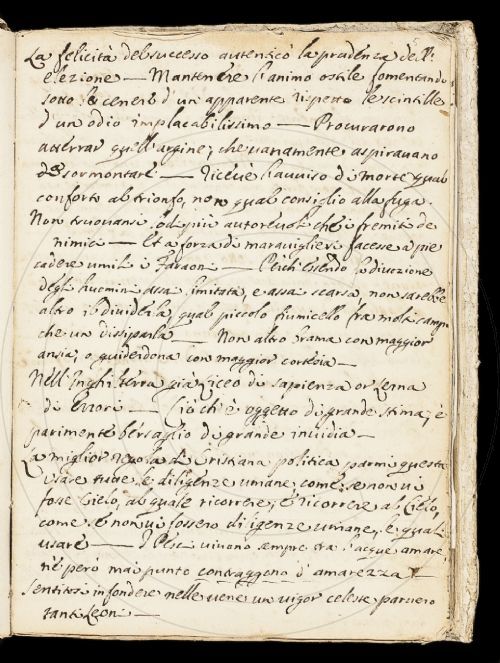 La felicità del successo autenticò la prudenza dell'
elezione — Mantenere l'animo ostile fomentando
sotto le ceneri d'un apparente rispetto le scintille
d'un odio implacabilissimo — Procurarono
atterrar quell'argine, che vanamente aspiravano
di sormontare — Ricevè l'avviso di morte qual
conforto al trionfo, non qual consiglio alla fuga.
Non truovansi lodi più autorevoli che i fremiti de
nimici — Et a forza di maraviglie si facesse a piè
cadere umili i Faraoni — Perch'essendo la divozione
degl'huomini assai limitata, e assai scarsa, non sarebbe
altro il dividerla, qual piccolo fiumicello fra molti campi
che un dissiparla — Non altro brama con maggior
ansia, o guiderdona con maggior cortesia —
Nell'Inghilterra già Liceo di sapienza or Lerna
di Errori — Ciò ch'è oggetto di grande stima, è
parimente bersaglio di grande invidia —
La miglior regola di Cristiana politica parmi questa
Usare tutte le diligenze umane, come se non vi
fosse Cielo, al quale ricorrere, e ricorrere al Cielo,
come se non vi fossero diligenze umane, le quali
usare — I Pesci vivono sempre tra l'acque amare,
nè però mai punto contraggono d'amarezza
Sentitosi infondere nelle vene un vigor celeste parvero
tanti Leoni —